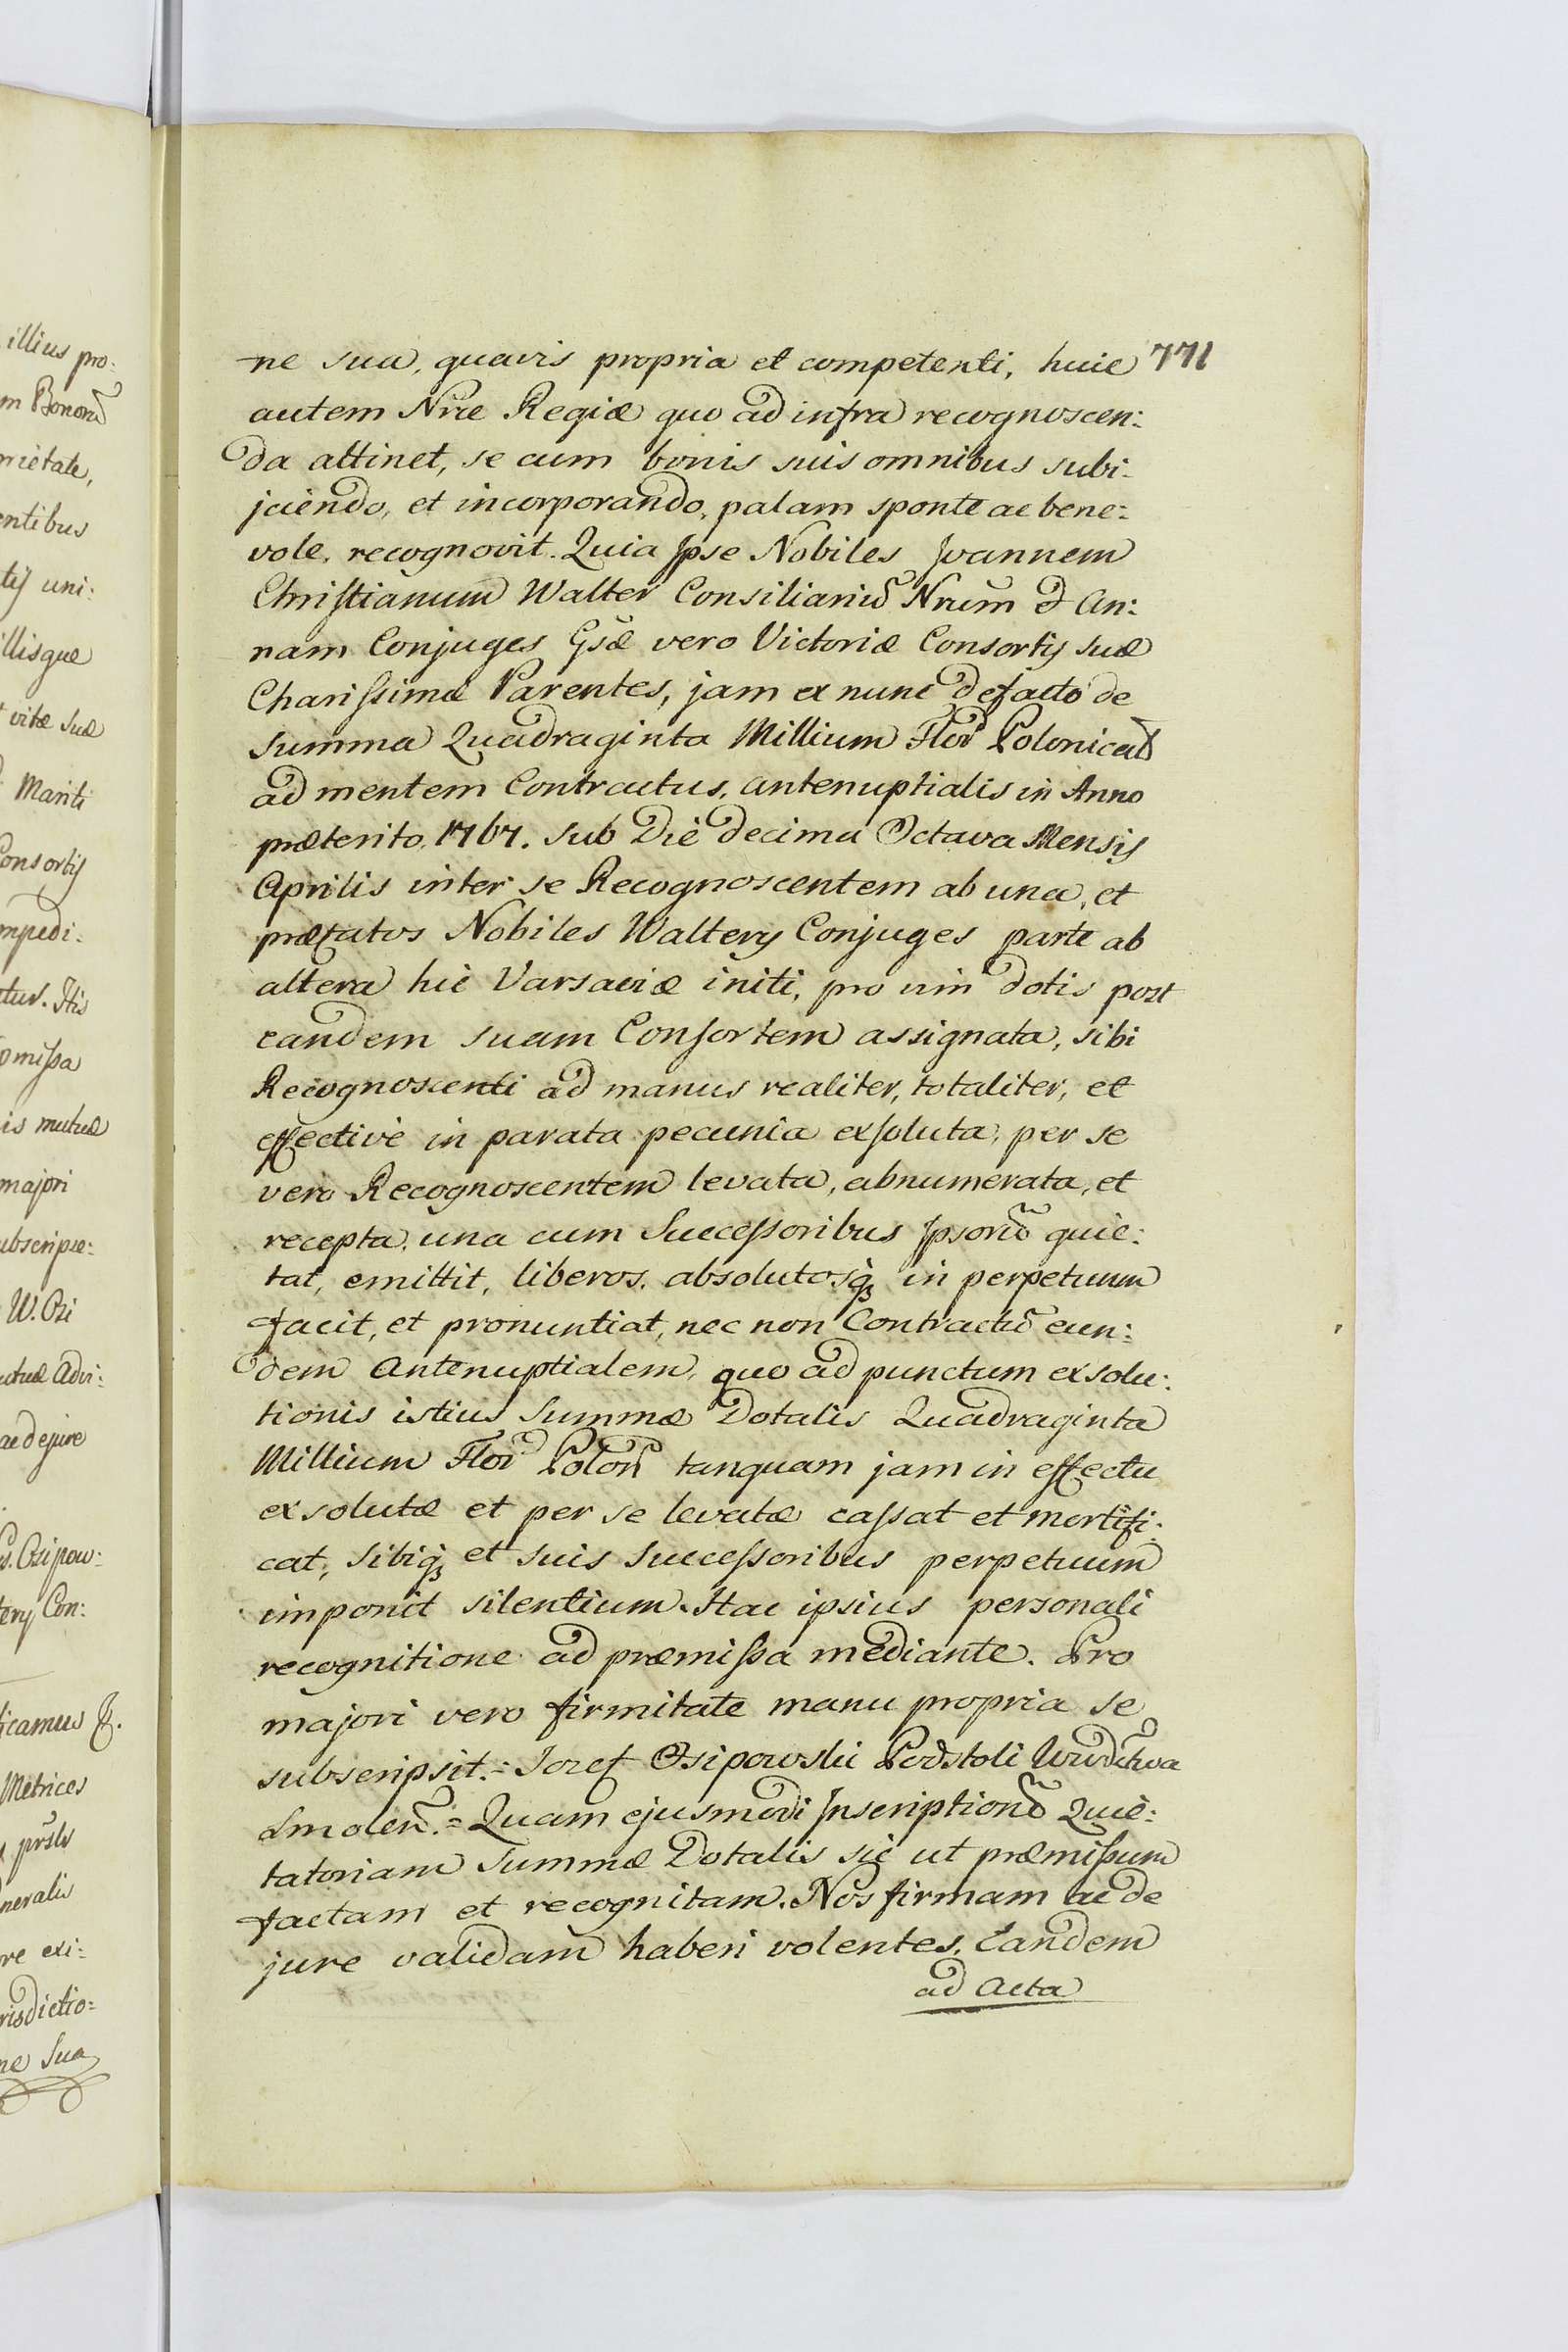 ne sua, quavis propria et competenti, huic 771
autem Nrae Regiæ quo ad infra recognoscen:
da attinet, se cum bonis suis omnibus subi:
jciendo, et incorporando, palam sponte ac bene:
vole, recognovit. Quia Ipse Nobiles Joannem
Christianum Walter Consiliariũ Nrum & An:
nam Conjuges Gsæ vero Victoriæ Consortis suæ
Charissimæ Parentes, jam ex nunc defacto de
Summa Quadraginta Millium Flor Polonical
ad mentem Contractus, antenuptialis in Anno
præterito, 1767. sub Die decima Octava Mensis
Aprilis inter se Recognoscentem ab una, et
præfatos Nobiles Walterÿ Conjuges parte ab
altera hic Varsaviæ initi, pro vim dotis post
eandem suam Consortem assignata, sibi
Recognoscenti ad manus realiter, totaliter, et
effective in parata pecunia exsoluta, per se
vero Recognoscentem levata, abnumerata, et
recepta, una cum Successoribus Ipsorũ quie:
tat, emittit, liberos, absolutosq; in perpetuum
facit, et pronuntiat, nec non Contractũ eun:
dem Antenuptialem, quo ad punctum exsolu:
tionis istius Summæ Dotalis Quadraginta
Millium Flor Polon tanquam jam in effectu
exsolutæ et per se levatæ cassat et mortifi:
cat, sibiq; et suis Successoribus perpetuum
imponit silentium. Hac ipsius personali
recognitione ad præmissa mediante. Pro
majori vero firmitate manu propria se
subscripsit. = Jozef Osipowski Podstoli Wwdztwa
Smolen. = Quam ejusmodi Inscriptionẽ Quie:
tatoriam Summæ Dotalis sic ut præmissum
factam et recognitam. Nos firmam ac de
jure validam haberi volentes, Eandem
ad Acta